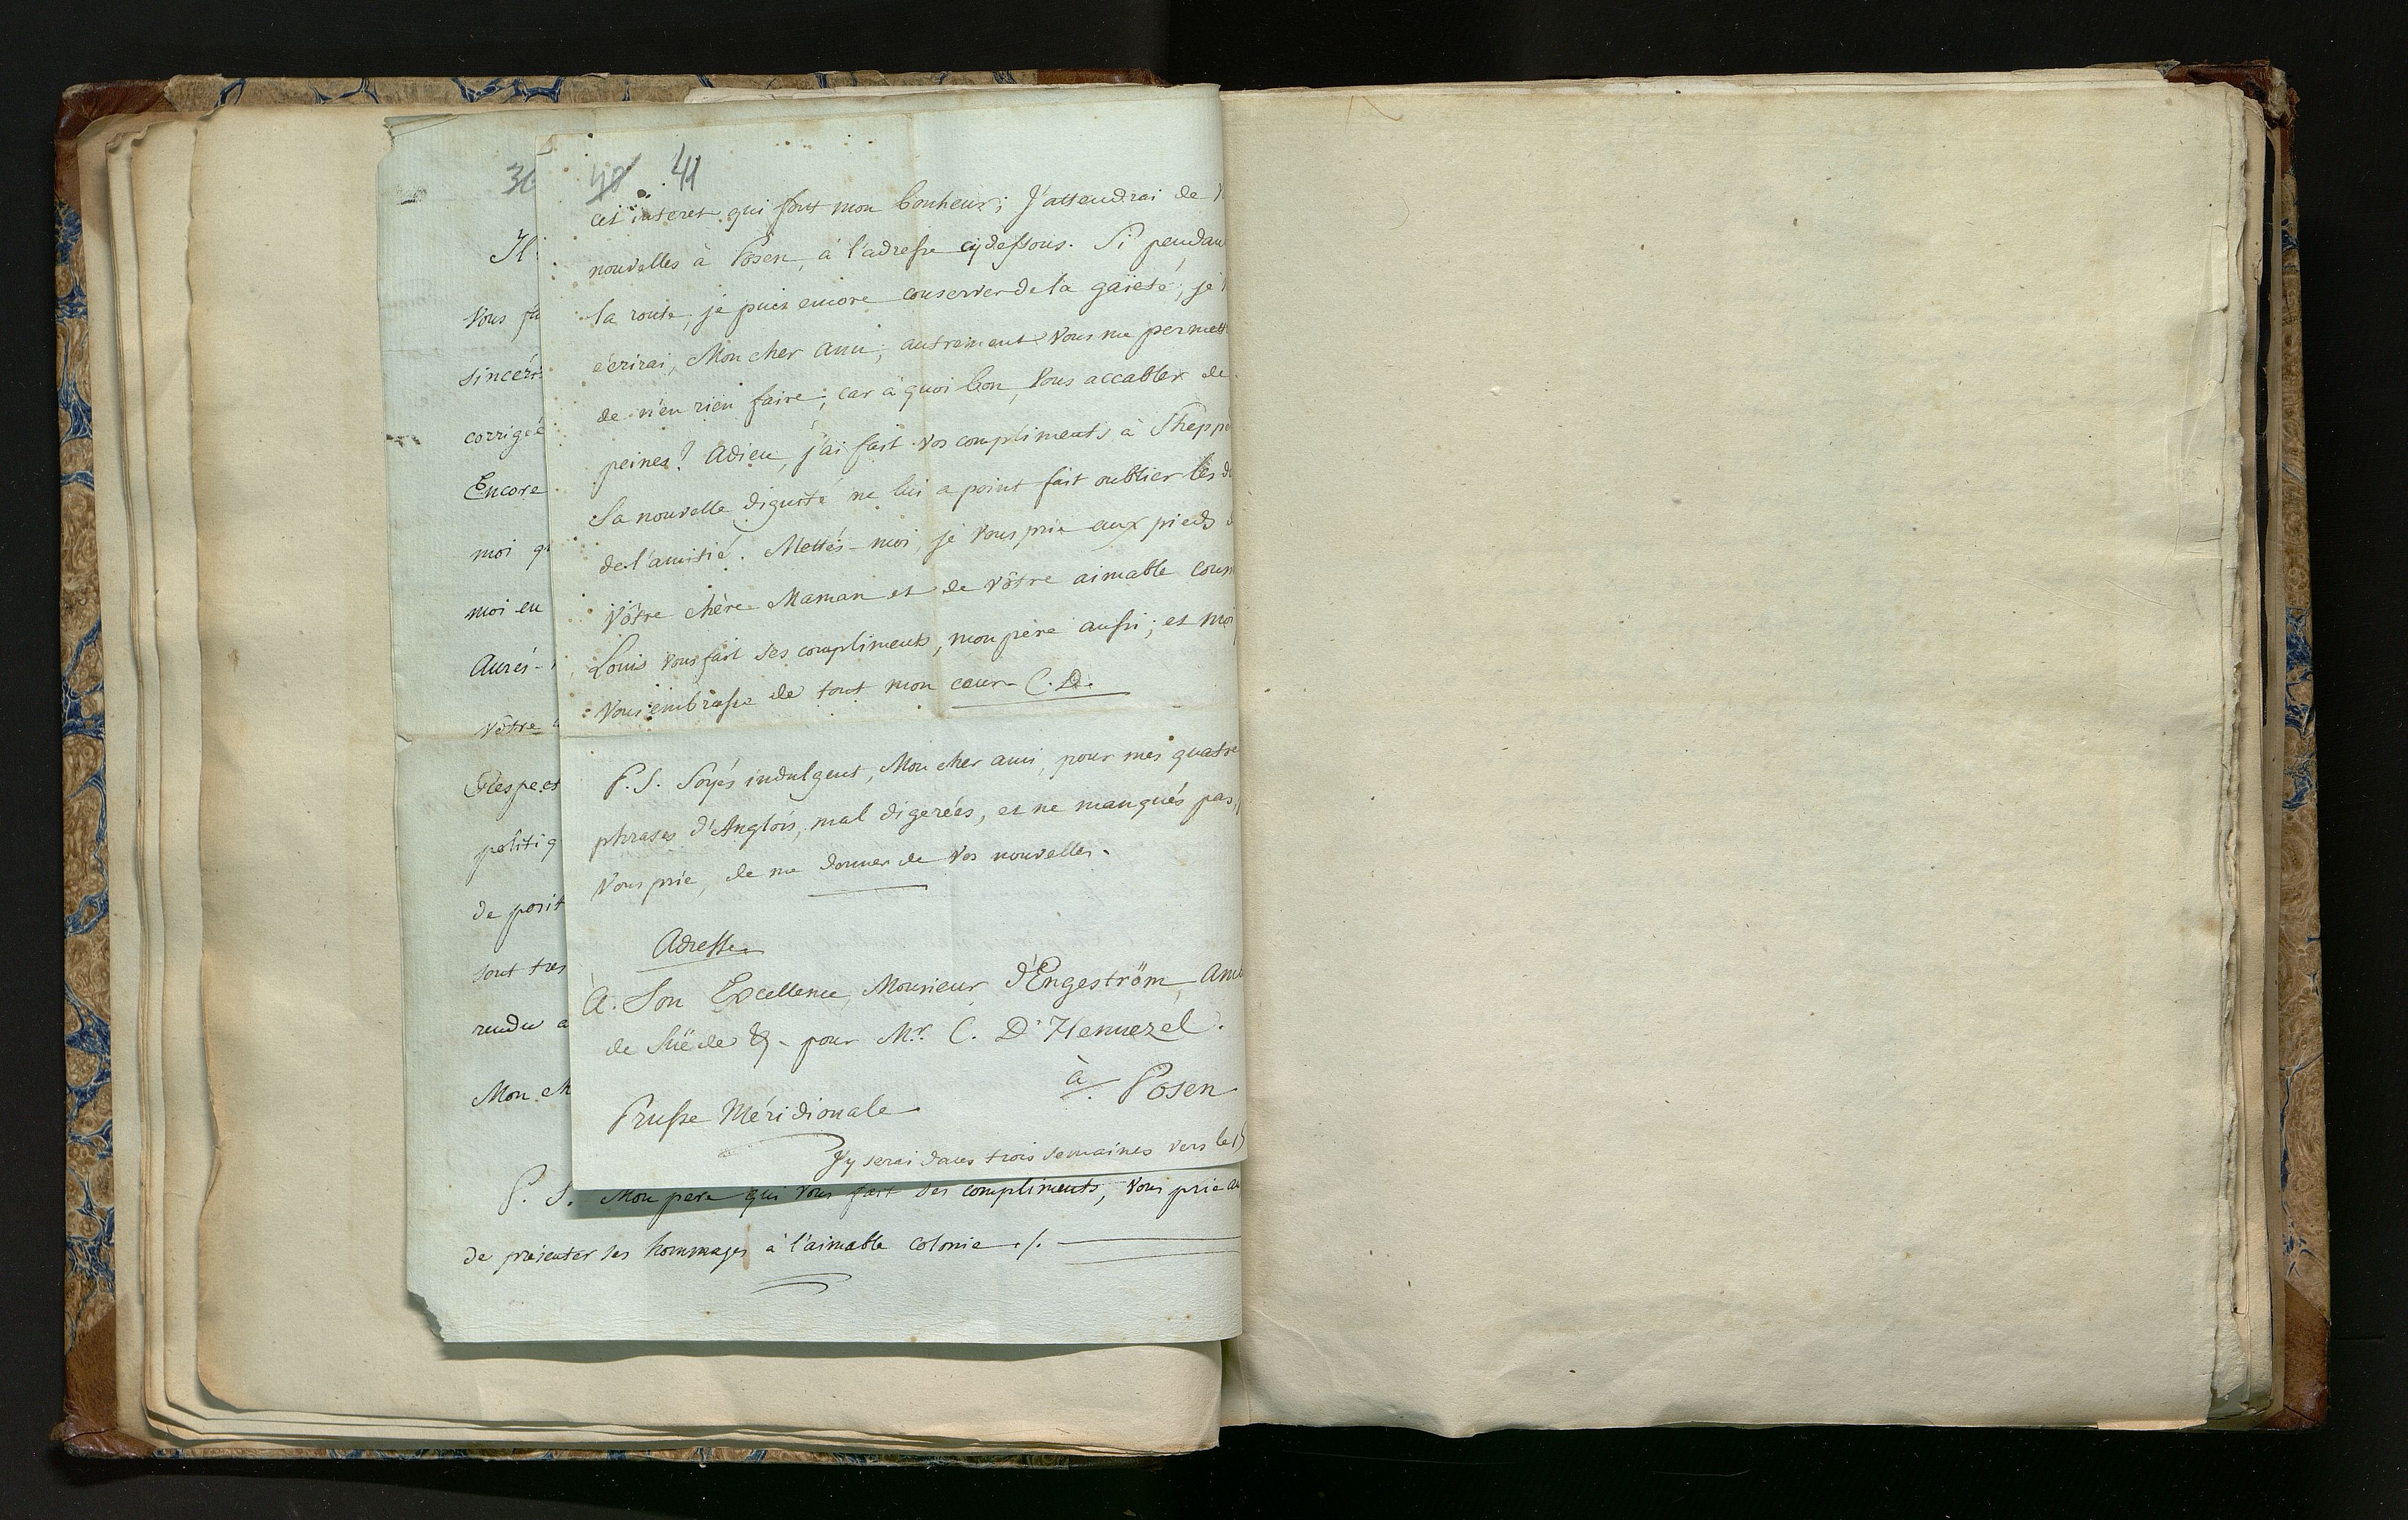 41
cet interet qui fait mon bonheur; J'attendrai de
nouvelles à Posen, à l'adresse cydessous. Si pendan
la route, je puis encore conserver de la gaieté, je
écrirai, Mon cher ami; autrement vous me permett
de n'en rien faire; car à quoi bon, vous accabler de
peines? Adieu, j'ai fait vos compliments à
Sa nouvelle dignité ne lui a point fait oublier les d
de l'amitié. Mettés-moi, je vous prie aux pieds d
Vôtre chère Maman et de vôtre aimable
Louis vous fait ses compliments, mon père aussi; et moi
Vous embrasse de tout mon cœur C. D.
P. S. Soyés indulgent, Mon cher ami, pour mes quatre
phrases d'Anglois, mal digerées, et ne manqués pas,
Vous prie, de me donner de vos nouvelles.
Adresse
A. Son Excellence, Monsieur d'Engeström, Am
de Suède &. pour Mr. C. D'Hennezel.
à Posen
Prusse Méridionale
J'y serai dans trois semaines vers le 15
36
Il
Vous
sinceri
corrigée
Encore
moi
moi en
Aurés-
Vôtre
Respect
politiq
de posit
sont tres
rendu a
Mon ch
P. S. Mon pere qui vous fait ses compliments, vous prie au
de présenter ses hommages à l'aimable colonie ./.